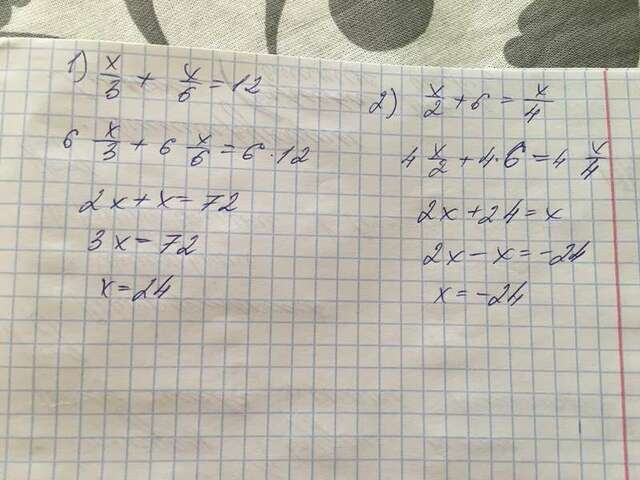 1) x/3 + x/6 = 12
6 x/3 + 6 x/6 = 6·12
2x + x = 72
3x = 72
x = 24
2) x/2 + 6 = x/4
4 x/2 + 4·6 = 4 x/4
2x + 24 = x
2x - x = -24
x = -24